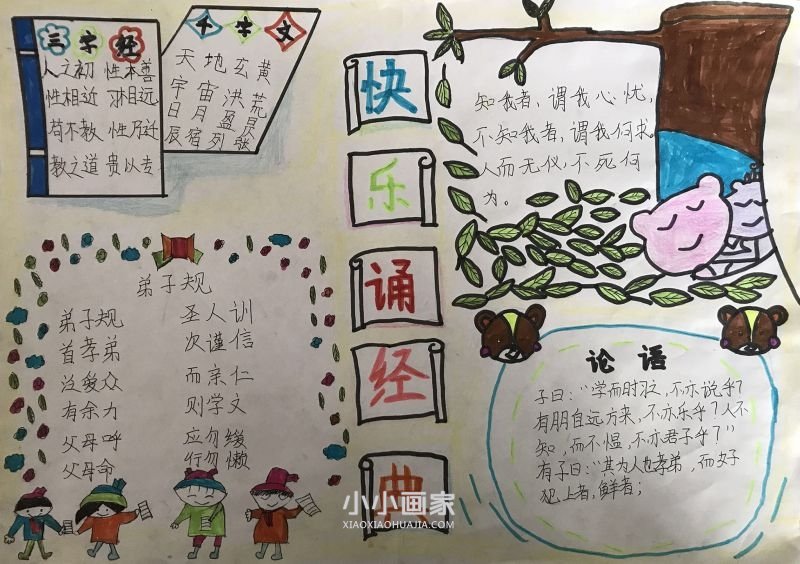 三字经
人之初 性本善
性相近 习相远
苟不教 性乃迁
教之道 贵以专
千字文
天地玄黄
宇宙洪荒
日月盈昃
辰宿列张
快
乐
诵
经
典
知我者,谓我心忧,
不知我者,谓我何求。
人而无仪,不死何
为。
弟子规
弟子规 圣人训
首孝弟 次谨信
泛爱众 而亲仁
有余力 则学文
父母呼 应勿缓
父母命 行勿懒
论语
子曰:“学而时习之,不亦说乎?
有朋自远方来,不亦乐乎?人不
知,而不愠,不亦君子乎?”
有子曰:“其为人也孝弟,而好
犯上者,鲜者;
小小画家
XIAOXIAOHUAJIA.COM